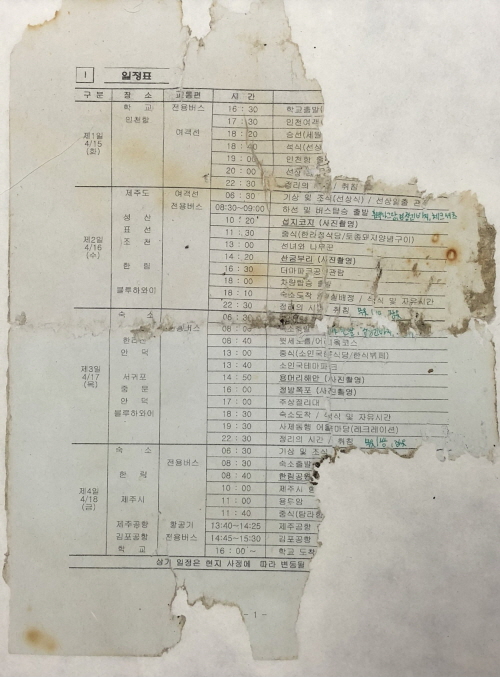 1 일정표
구 분 장 소 교통편 시 간
제1일 4/15 (화)
학 교 전용버스 16 : 30 학교출발
인천항 17 : 30 인천여객
여객선 18 : 20 승선(세월
18 : 40 석식(선상
19 : 00 인천항 출
20 : 00 선상
22 : 30 정리의 시간 / 취침
제2일 4/16 (수)
제주도 여객선 06 : 30 기상 및 조식(선상식) / 선상일출 관
전용버스 08:30~09:00 하선 및 버스탑승 출발
성 산 10 : 20 섭지코지 (사진촬영)
표 선 11 : 30 중식(한라정식당/토종돼지양념구이)
조 천 13 : 00 선녀와 나무꾼
14 : 20 산굼부리 (사진촬영)
한 림 16 : 30 더마파크공 관람
18 : 00 차량탑승 출발
블루하와이 18 : 10 숙소도착 / 실배정 / 석식 및 자유시간
22 : 30 정리의 시간 / 취침
제3일 4/17 (목)
숙 소 06 : 30
용버스 08 : 00 숙소출발
한라산 08 : 40 윗세오름/어 목코스
안 덕 13 : 00 중식(소인국 식당/한식뷔페)
13 : 40 소인국테마파크
서귀포 14 : 50 용머리해안 (사진촬영)
중 문 16 : 00 천제연폭포 (사진촬영)
안 덕 17 : 00 주상절리대
블루하와이 18 : 30 숙소도착 / 석식 및 자유시간
19 : 30 사제동행 어울마당(레크레이션)
22 : 30 정리의 시간 / 취침
제4일 4/18 (금)
숙 소 06 : 30 기상 및 조식
전용버스 08 : 30 숙소출발
한 림 08 : 40 한림공원
10 : 00 제주시
제주시 11 : 00 용두암
11 : 40 중식(탐라
제주공항 항공기 13:40~14:25 제주공항
김포공항 전용버스 14:45~15:30 김포공항
학 교 16 : 00 ~ 학교 도착
상기 일정은 현지 사정에 따라 변동될
- 1 -